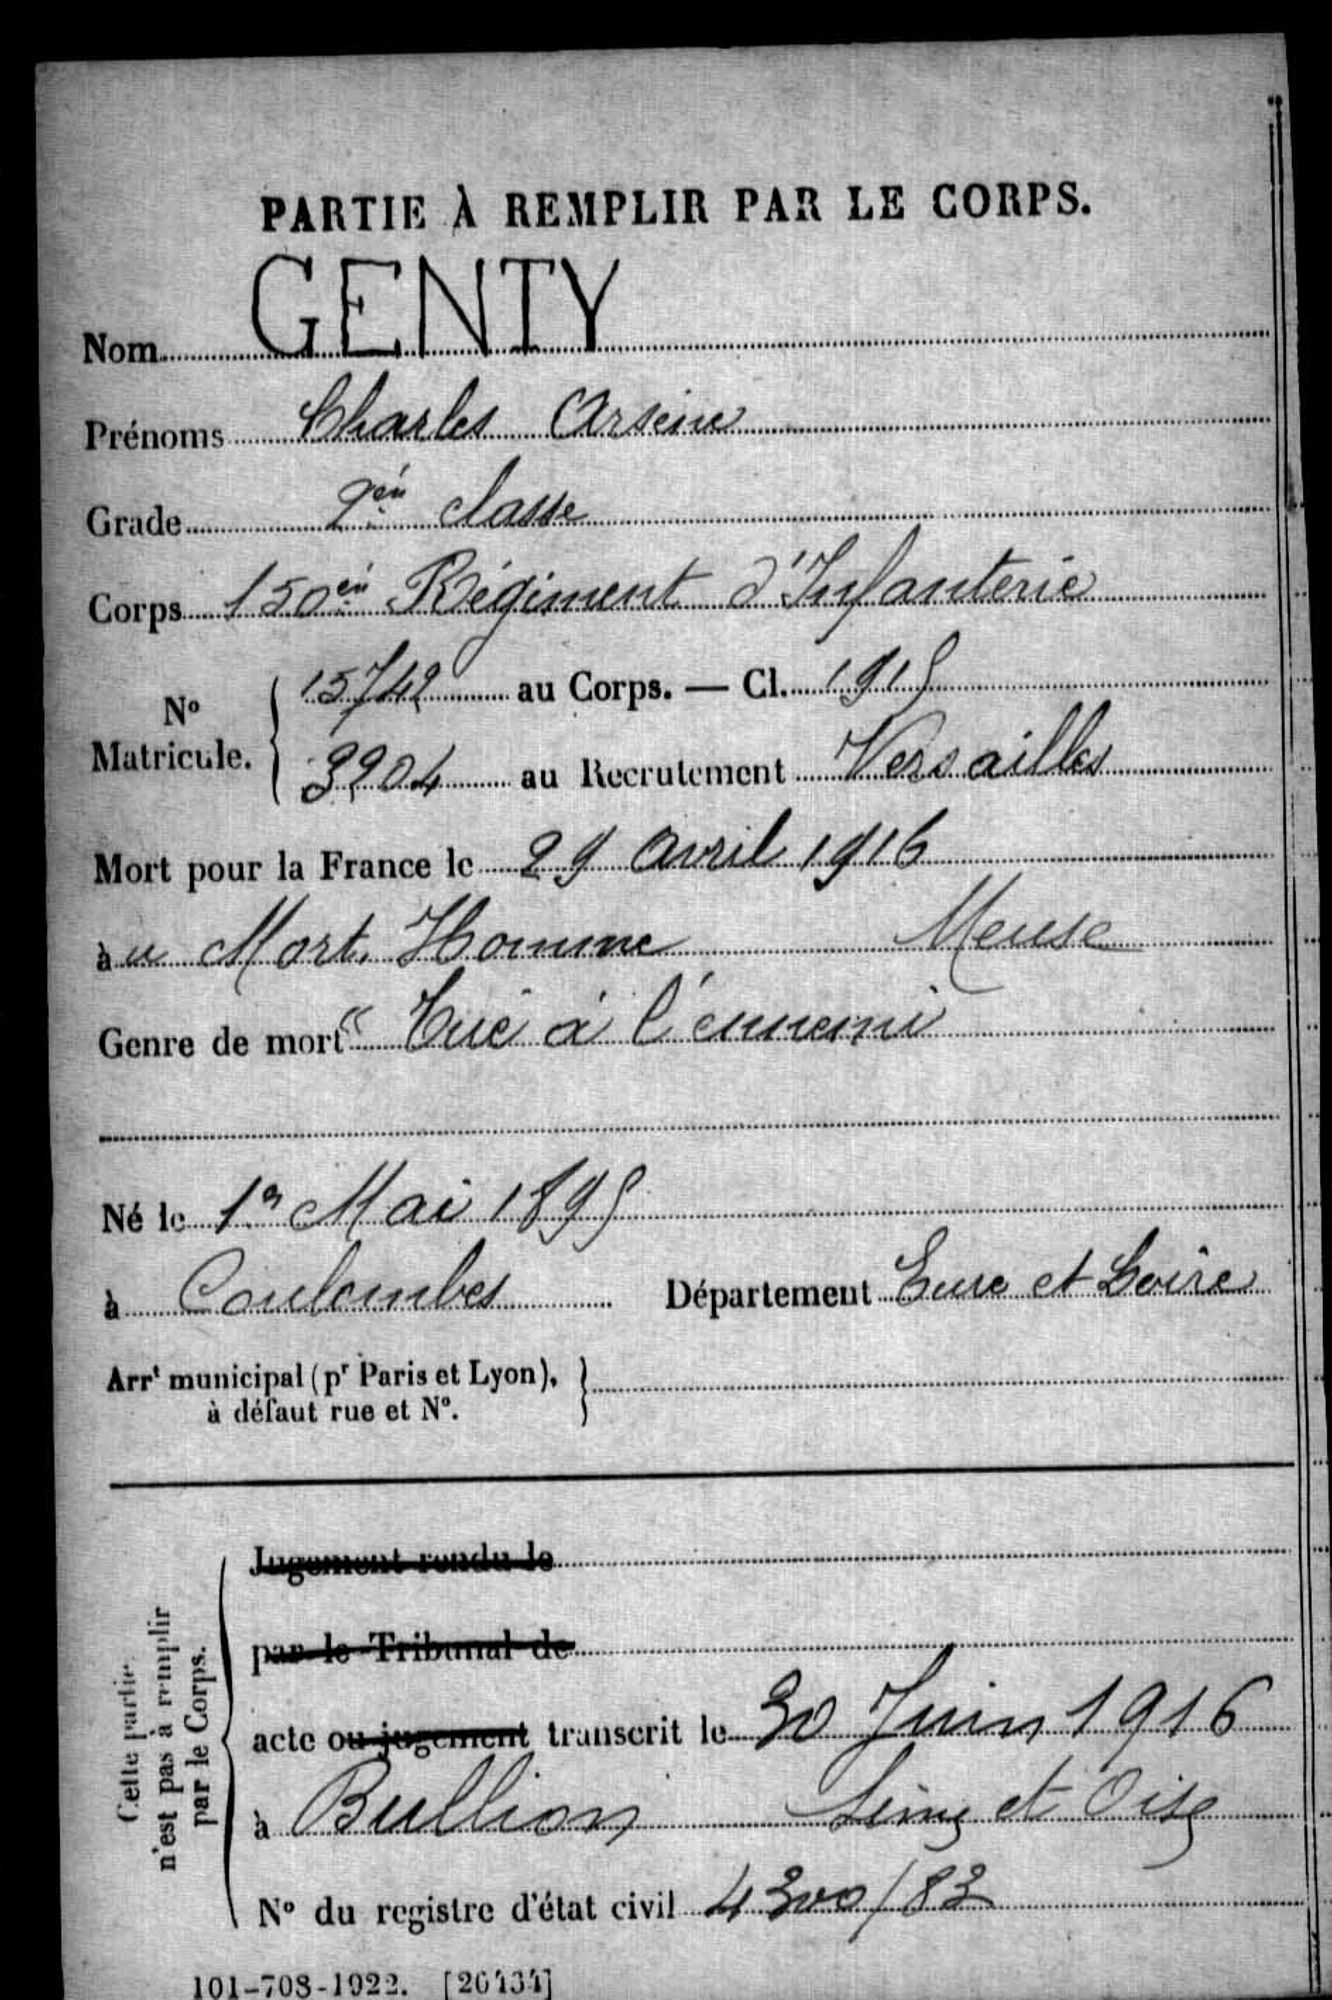 PARTIE À REMPLIR PAR LE CORPS.
Nom GENTY
Prénoms Charles Arsène
Grade 2èm classe
Corps 150èm Régiment d'Infanterie
N° Matricule. 15742 au Corps. — Cl. 1915
3204 au Recrutement Versailles
Mort pour la France le 29 avril 1916
au Mort, Homme Meuse
Genre de mort " Tué à l'ennemi
Né le 1er Mai 1895
à Coulombes Département Eure et Loire
Arrt municipal (pr Paris et Lyon),
à défaut rue et N°.
Cette partie
n'est pas à remplir
par le Corps.
Jugement rendu le
par le Tribunal de
acte ou jugement transcrit le 30 Juin 1916
à Bullion Seine et Oise
N° du registre d'état civil 4300/83
101-708-1922. [26434]